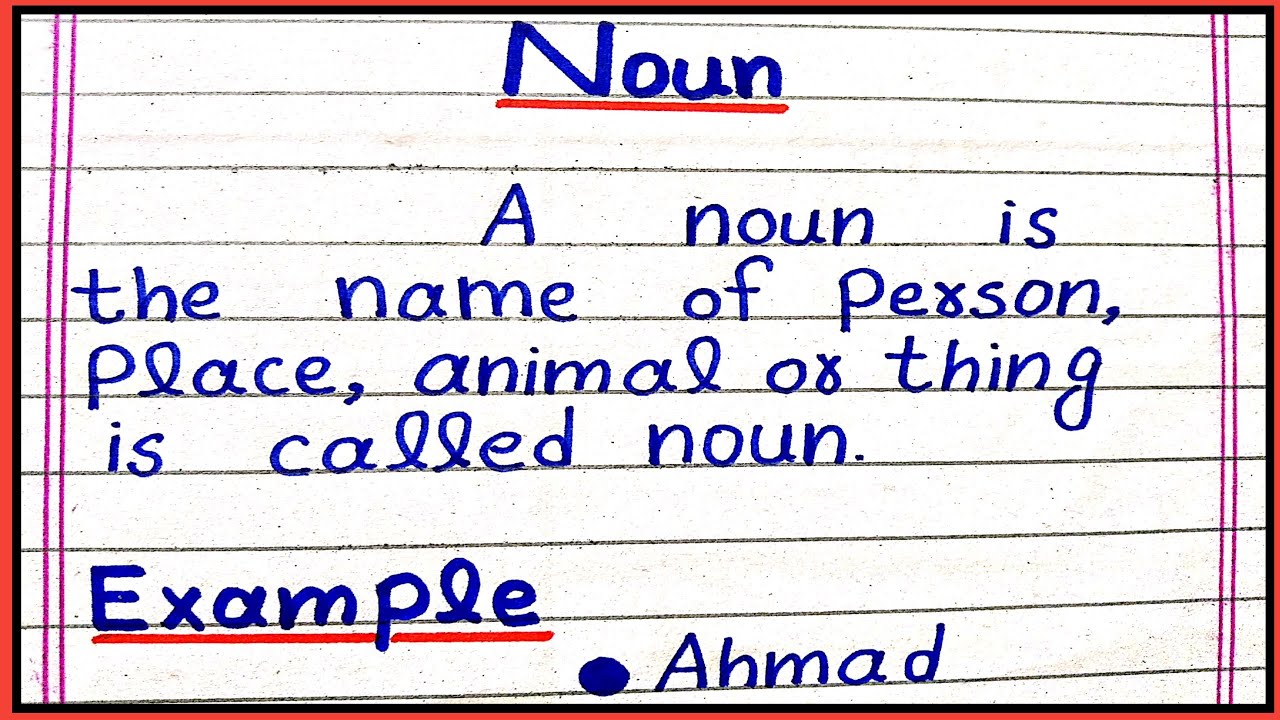 Noun
A noun is
the name of person,
place, animal or thing
is called noun.
Example
• Ahmad